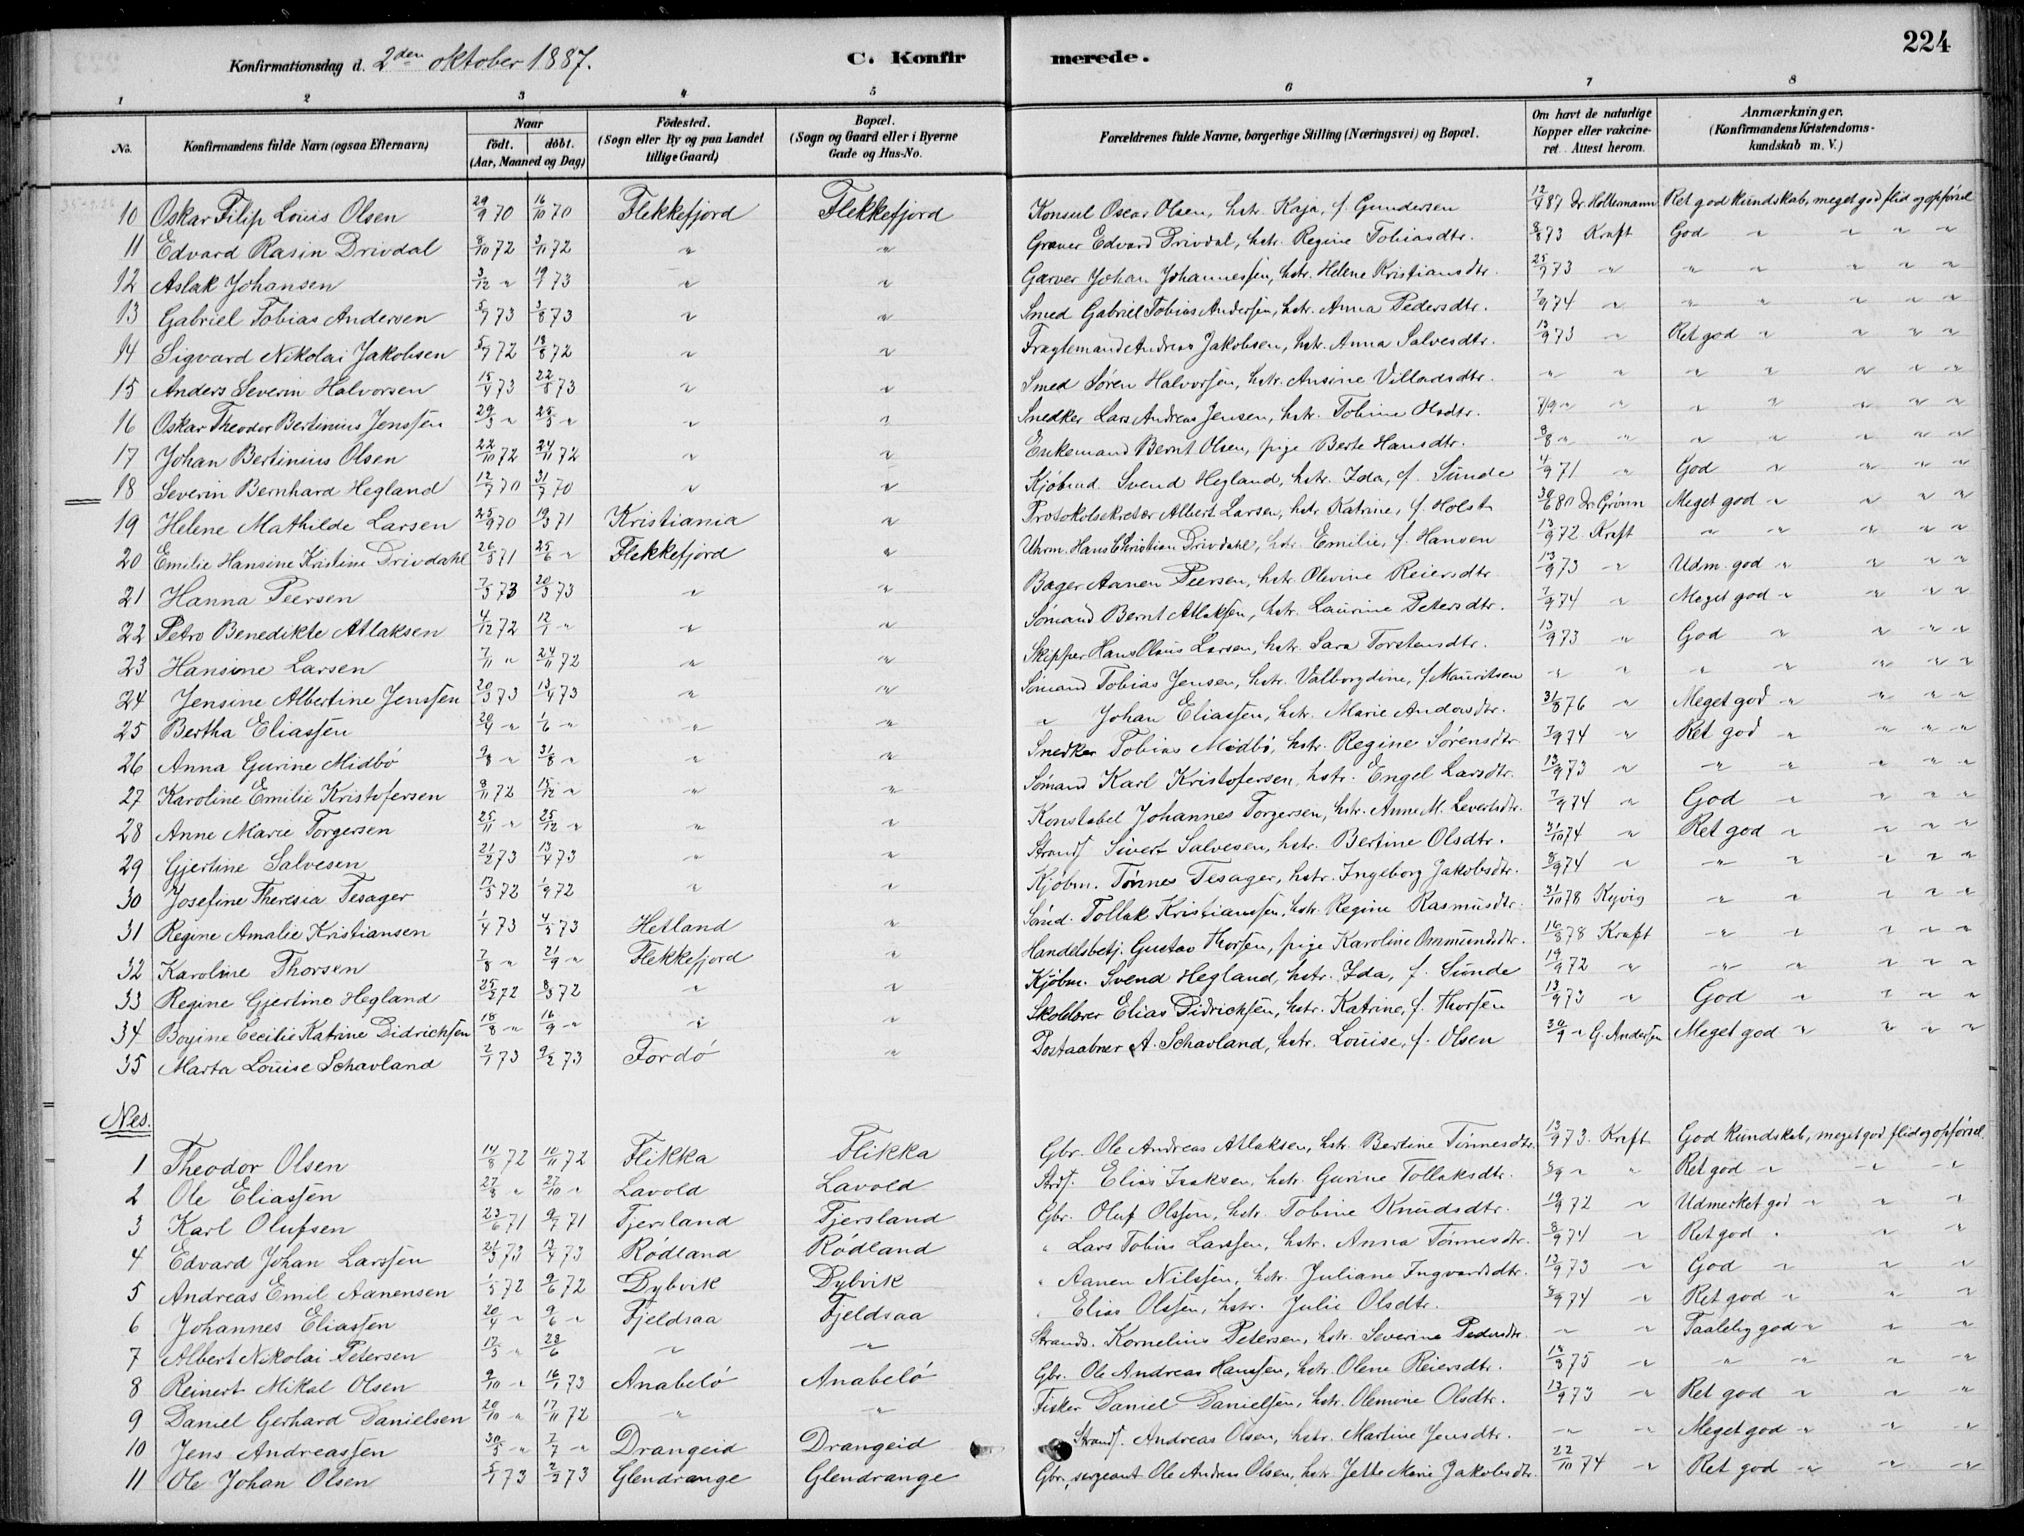 224
Konfirmationsdag d. 2den oktober 1887. C. Konfirmerede.
1 2 3 4 5 6 7 8
No. Konfirmandens fulde Navn (ogsaa Efternavn) Naar født. døbt. (Aar, Maaned og Dag) Fødested. (Sogn eller By og paa Landet tillige Gaard) Bopæl. (Sogn og Gaard eller i Byerne Gade og Hus-No. Forældrenes fulde Navne, borgerlige Stilling (Næringsvei) og Bopæl. Om havt de naturlige Kopper eller vakcineret. Attest herom. Anmærkninger. (Konfirmandens Kristendomskundskab m. V.)
10 Oskar Filip Louis Olsen 29/9 70 16/10 70 Flekkefjord Flekkefjord Konsul Oscar Olsen, hstr. Kaja, f. Gundersen 12/9 87 Dr. Holtermann Ret god kundskab, meget god flid og opførsel
11 Edvard Rasin Drivdal 8/10 72 3/11 72 " " Graver Edvard Drivdal, hstr. Regine Tobiasdtr. 8/8 73 Kraft God " " " "
12 Aslak Johansen 3/12 " 19/1 73 " " Garver Johan Johannessen, hstr. Helene Kristiansdtr. 25/7 73 " " " " " "
13 Gabriel Tobias Andersen 5/7 73 3/8 73 " " Smed Gabriel Tobias Andersen, hstr. Anna Pedersdtr. 7/9 74 " " " " " "
14 Sigvard Nikolai Jakobsen 5/7 72 18/8 72 " " Fragtemand Andreas Jakobsen, hstr. Anna Salvesdtr. 13/9 73 " Ret god " " " "
15 Anders Severin Halvorsen 15/4 73 22/5 73 " " Smed Søren Halvorsen, hstr. Ansine Villadsdtr. " " " " " " "
16 Oskar Theodor Bertinius Jenssen 29/3 " 25/5 " " " Snedker Lars Andreas Jensen, hstr. Tobine Olsdtr. 7/9 " " " " " " "
17 Johan Bertinius Olsen 22/10 72 24/11 72 " " Enkemand Bernt Olsen, pige Berte Hansdtr. 8/8 " " " " " " "
18 Severin Bernhard Hegland 12/7 70 31/7 70 " " Kjøbmd. Svend Hegland, hstr. Ida, f. Sunde 4/9 71 " God " " " "
19 Helene Mathilde Larsen 25/9 70 19/3 71 Kristiania " Protokolsekretær Albert Larsen, hstr. Katrine, f. Holst 30/6 80 Dr. Grønn Meget god " " " "
20 Emilie Hansine Kristine Drivdahl 26/5 71 25/6 " Flekkefjord " Uhrm. Hans Christian Drivdahl, hstr. Emilie, f. Hansen 13/9 72 Kraft " " " " "
21 Hanna Peersen 7/3 73 20/3 73 " " Bager Aanen Peersen, hstr. Olevine Reiersdtr. 13/9 73 " Udm. god " " " "
22 Petro Benedikte Atlaksen 4/12 72 12/1 " " " Sømand Bernt Atlaksen, hstr. Laurine Petersdtr. 7/9 74 " Meget god " " " "
23 Hansine Larsen 7/11 " 24/11 72 " " Skipper Hans Olaus Larsen, hstr. Sara Torstensdtr. 13/9 73 " God " " " "
24 Jensine Albertine Jenssen 20/3 73 13/4 73 " " Sømand Tobias Jensen, hstr. Valborgdine, f. Mauritsen " " " " " " "
25 Bertha Eliassen 20/4 " 1/6 " " " " Johan Eliassen, hstr. Marie Andersdtr. 31/8 76 " Meget god " " " "
26 Anna Gurine Midbø 9/8 " 31/8 " " " Snedker Tobias Midbø, hstr. Regine Sørensdtr. 7/9 74 " Ret god " " " "
27 Karoline Emilie Kristofersen 8/11 72 15/12 " " " Sømand Karl Kristofersen, hstr. Engel Larsdtr. 13/9 73 " " " " " "
28 Anne Marie Torgersen 25/11 " 25/12 " " " Konstabel Johannes Torgersen, hstr. Anne M. Levertsdtr. 7/9 74 " God " " " "
29 Gjertine Salvesen 21/2 73 13/4 73 " " Strands. Sivert Salvesen, hstr. Bertine Olsdtr. 31/10 74 " Ret god " " " "
30 Josefine Theresia Tesager 17/5 72 1/9 72 " " Kjøbm. Tønnes Tesager, hstr. Ingeborg Jakobsdtr. 8/9 74 " " " " " "
31 Regine Amalie Kristiansen 1/4 73 4/5 73 Hetland " Sømd. Tollak Kristianssen, hstr. Regine Rasmusdtr. 31/10 78 Kyvig " " " " "
32 Karoline Thorsen 7/8 " 21/9 " Flekkefjord " Handelsbetj. Gustav Thorsen, pige Karoline Ommundsdtr. 16/8 78 Kraft " " " " "
33 Regine Gjertine Hegland 25/2 72 8/3 72 " " Kjøbm. Svend Hegland, hstr. Ida, f. Sunde 19/9 72 " " " " " "
34 Boyine Cecilie Katrine Didrichsen 18/8 " 16/9 " " " Skolelærer Elias Didrichsen, hstr. Katrine, f. Thorsen 13/9 73 " God " " " "
35 Marta Louise Schavland 2/1 73 9/2 73 Fordø " Postaabner A. Schavland, hstr. Louise, f. Olsen 30/9 " G. Andersen Meget god " " " "
Nes.
1 Theodor Olsen 14/8 72 10/11 72 Flikka Flikka Gbr. Ole Andreas Atlaksen, hstr. Bertine Tønnesdtr. 13/9 73. Kraft God kundskab, meget god flid og opførsel.
2 Ole Eliassen 27/8 " 27/10 " Lavold Lavold Strds. Elias Isaksen, hstr. Gurine Tollaksdtr. 8/9 " " Ret god " " "
3 Karl Olufsen 23/6 71 9/7 71 Tjersland Tjersland Gbr. Oluf Olssen, hstr. Tobine Knudsdtr. 19/9 72 " Udmerket god " " "
4 Edvard Johan Larssen 21/3 73 13/4 73 Rødland Rødland " Lars Tobias Larssen, hstr. Anna Tønnesdtr. 8/9 74 " Ret god " " "
5 Andreas Emil Aanensen 1/5 72 9/6 72 Dybvik Dybvik " Aanen Nilssen, hstr. Juliane Ingvardsdtr. 13/9 73 " God " " "
6 Johannes Eliassen 20/4 " 9/6 " Fjeldsaa Fjeldsaa " Elias Olssen, hstr. Julie Olsdtr. 8/9 74 " Ret god " " "
7 Albert Nikolai Petersen 17/5 " 23/6 " " Strands. Kornelius Petersen, hstr. Severine Pedersdtr. " " Taalelig god " " "
8 Reinert Mikal Olsen 9/10 " 16/1 73 Anabelø Anabelø Gbr. Ole Andreas Hanssen, hstr. Olene Reiersdtr. 18/8 75 " " " " "
9 Daniel Gerhard Danielsen 20/10 " 17/11 72 " " Fisker Daniel Danielsen, hstr. Olemine Olsdtr. 13/9 73 " Ret god " " "
10 Jens Andreassen 30/5 " 7/7 " Drangeid Drangeid Strands. Andreas Olsen, hstr. Martine Jensdtr. " " Meget god " " "
11 Ole Johan Olsen 5/1 73 2/2 73 Glendrange Glendrange Gbr., sergeant Ole Andreas Olsen, hstr. Jette Marie Jakobsdtr. 22/10 74 " Ret god " " "